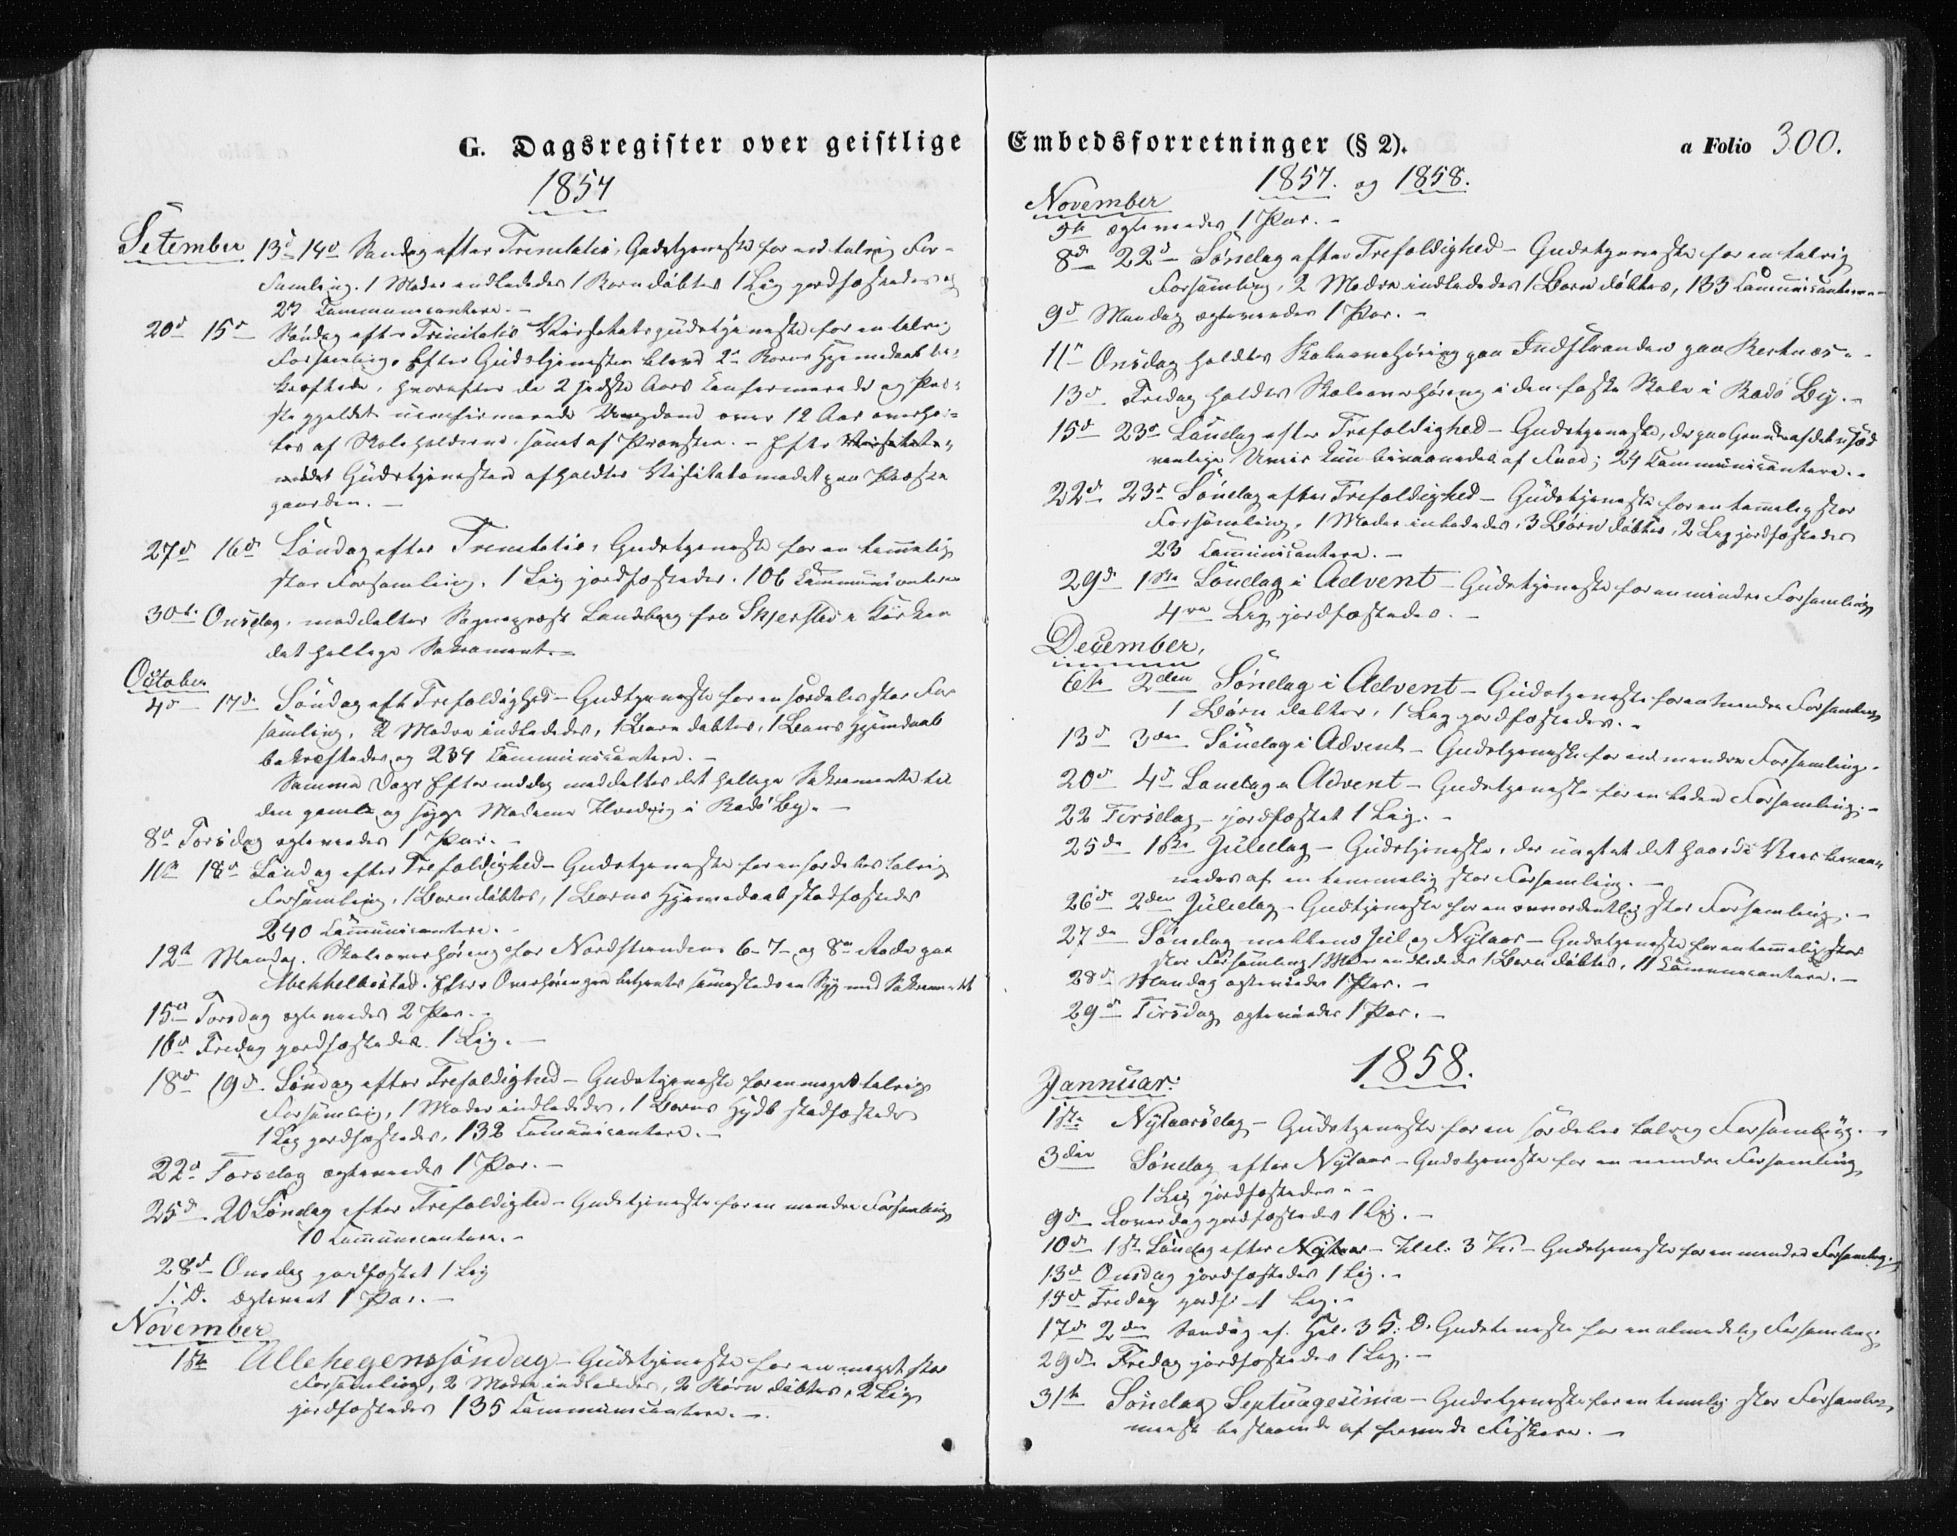 G. Dagsregister over geistlige
1857
Setember 13d 14d Søndag efter Trinitatis, Gudstjeneste for en talrig For-
samling. 1 Moder indledede 1 Barn døbtes 1 Lig jordfæstedes og
27 Communicantere. -
20d 15d Søndag efter Trinitatis Visitatsgudstjeneste for en talrig
Forsamling. Efter Gudstjenesten blev 2n Børns Hjemmedaab be-
kræftede, hvorefter de 2 sidste Aars Confirmerede og Præ-
stegjeldets uconfirmerede Ungdom over 12 Aar overhør-
tes af Skoleholderne, samt af Provsten. - Efter Visitats-
mødet Gudstjenesten afholdtes Visitatsmødet paa Præste-
gaarden. -
27d 16d Søndag efter Trinitatis, Gudstjeneste for en temmelig
stor Forsamling. 1 Lig jordfæstedes. 106 Communicantere
30te Onsdag, meddeltes Sognepræst Landberg fra Skjersted i Kirken
det hellige Sakrament. -
October
4d 17d Søndag eft Trefoldighed - Gudstjeneste for en særdeles stor For-
samling, 2 Mødre indledede, 1 Barn døbtes, 1 Barns Hjemdaab
bekræftedes og 234 Communicantere. -
Samme Dags Eftermiddag meddeltes det hellige Sakramente til
den gamle og syge Madame Hvedvig i Bodø By. -
8d Torsdag ægteviedes 1 Par. -
11te 18d Søndag efter Trefoldighed - Gudstjeneste for en særdeles talrig
Forsamling, 1 Barn døbtes, 1 Barns Hjemmedaab stadfæstedes
240 Communicantere. -
12te Mandag. Skoleoverhøring for Nordstrandens 6- 7- og 8de Rode paa
Mekkelbostad. Efter Overhøringen betjentes sammesteds en Syg med Sakramentet
15d Torsdag ægteviedes 2 Par. -
16d Fredag jordfæstedes 1 Lig. -
18d 19d Søndag efter Trefoldighed - Gudstjeneste for en meget talrig
Forsamling, 1 Moder indledede, 1 Barns Hjdb stadfæstedes
1 Lig jordfæstedes, 132 Communicantere. -
22d Torsdag ægteviedes 1 Par. -
25d 20 Søndag efter Trefoldighed - Gudstjeneste for en mindre Forsamling
10 Communicantere. -
28d Onsdag jordfæstet 1 Lig
S. D. ægteviet 1 Par. -
November
1ste Allehegenssøndag - Gudstjeneste for en meget stor
Forsamling, 2 Mødre indledede, 2 Børn døbtes, 2 Lig
jordfæstedes 135 Communicantere. -
Embedsforretninger (§ 2). a Folio 300.
1857. og 1858.
November
5te ægteviedes 1 Par. -
8d 22d Søndag efter Trefoldighed - Gudstjeneste for en talrig
Forsamling, 2 Mødre indledede 1 Barn døbtes, 133 Communicantere
9d Mandag ægteviedes 1 Par. -
11te Onsdag holdtes Skoleoverhøring paa Indstranden paa Bertnæs. -
13d Fredag holdtes Skoleoverhøring i den faste Skole i Bodø By. -
15d 23d Søndag efter Trefoldighed - Gudstjeneste, der paa Grund af det usæd-
vanlige Uveir kun bivaanedes af Faae; 24 Communicantere. -
22d 23d Søndag efter Trefoldighed - Gudstjeneste for en temmelig stor
Forsamling, 1 Moder inledede, 3 Børn døbtes, 2 Lig jordfæstedes
23 Communicantere. -
29d 1ste Søndag i Advent - Gudstjeneste for en mindre Forsamling
4re Lig jordfæstedes. -
December,
6te 2den Søndag i Advent - Gudstjeneste for en mindre Forsamling
1 Børn døbtes, 1 Lig jordfæstedes. -
13d 3die Søndag i Advent - Gudstjeneste for en mindre Forsamling. -
20d 4d Søndag i Advent - Gudstjeneste for en liden Forsamling. -
22 Tirsdag - jordfæstet 1 Lig. -
25de 1ste Juledag - Gudstjeneste, der uagtet det haarde Veir bivaa-
nedes af en temmelig stor Forsamling. -
26d 2den Juledag - Gudstjeneste for en overordentlig stor Forsamling. -
27de Søndag mellem Jul og Nytaar - Gudstjeneste for en temmelig stor
stor Forsamling 1 Moder indledede 1 Barn døbtes, 11 Communicantere. -
28d Mandag ægteviedes 1 Par. -
29d Tirsdag ægteviedes 1 Par. -
1858.
Jannuar:
1ste Nytaarsdag - Gudstjeneste for en særdeles talrig Forsamling. -
3die Søndag efter Nytaar - Gudstjeneste for en mindre Forsamling
1 Lig jordfæstedes. -
9d Løverdag jordfæstedes 1 Lig. -
10d 1ste Søndag efter Nytaar - Hel: 3 K: - Gudstjeneste for en mindre Forsamling. -
13d Onsdag jordfæstedes 1 Lig. -
15d Fredag jordf: 1 Lig. -
17d 2den Søndag ef. Hel. 3 K. D. Gudstjeneste for en almindelig Forsamling
29d Fredag jordfæstedes 1 Lig. -
31te Søndag Septuagesima - Gudstjeneste for en temmelig stor Forsamling,
meest bestaaende af fremmede Fiskere. -